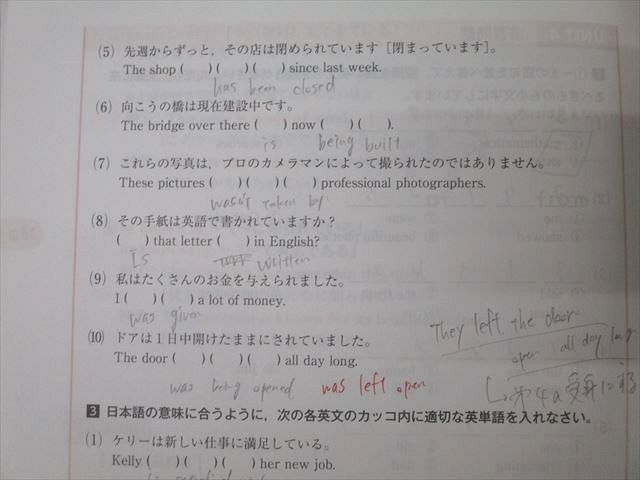 (5) 先週からずっと，その店は閉められています［閉まっています］。
The shop ( )( )( ) since last week.
has been closed
(6) 向こうの橋は現在建設中です。
The bridge over there ( ) now ( )( ).
is being built
(7) これらの写真は，プロのカメラマンによって撮られたのではありません。
These pictures ( )( )( ) professional photographers.
wasn't taken by
(8) その手紙は英語で書かれていますか？
( ) that letter ( ) in English?
Is written
(9) 私はたくさんのお金を与えられました。
I ( )( ) a lot of money.
was given
(10) ドアは1日中開けたままにされていました。
The door ( )( )( ) all day long.
was being opened was left open
They left the door
open all day long
3 日本語の意味に合うように，次の各英文のカッコ内に適切な英単語を入れなさい。
(1) ケリーは新しい仕事に満足している。
Kelly ( )( )( ) her new job.